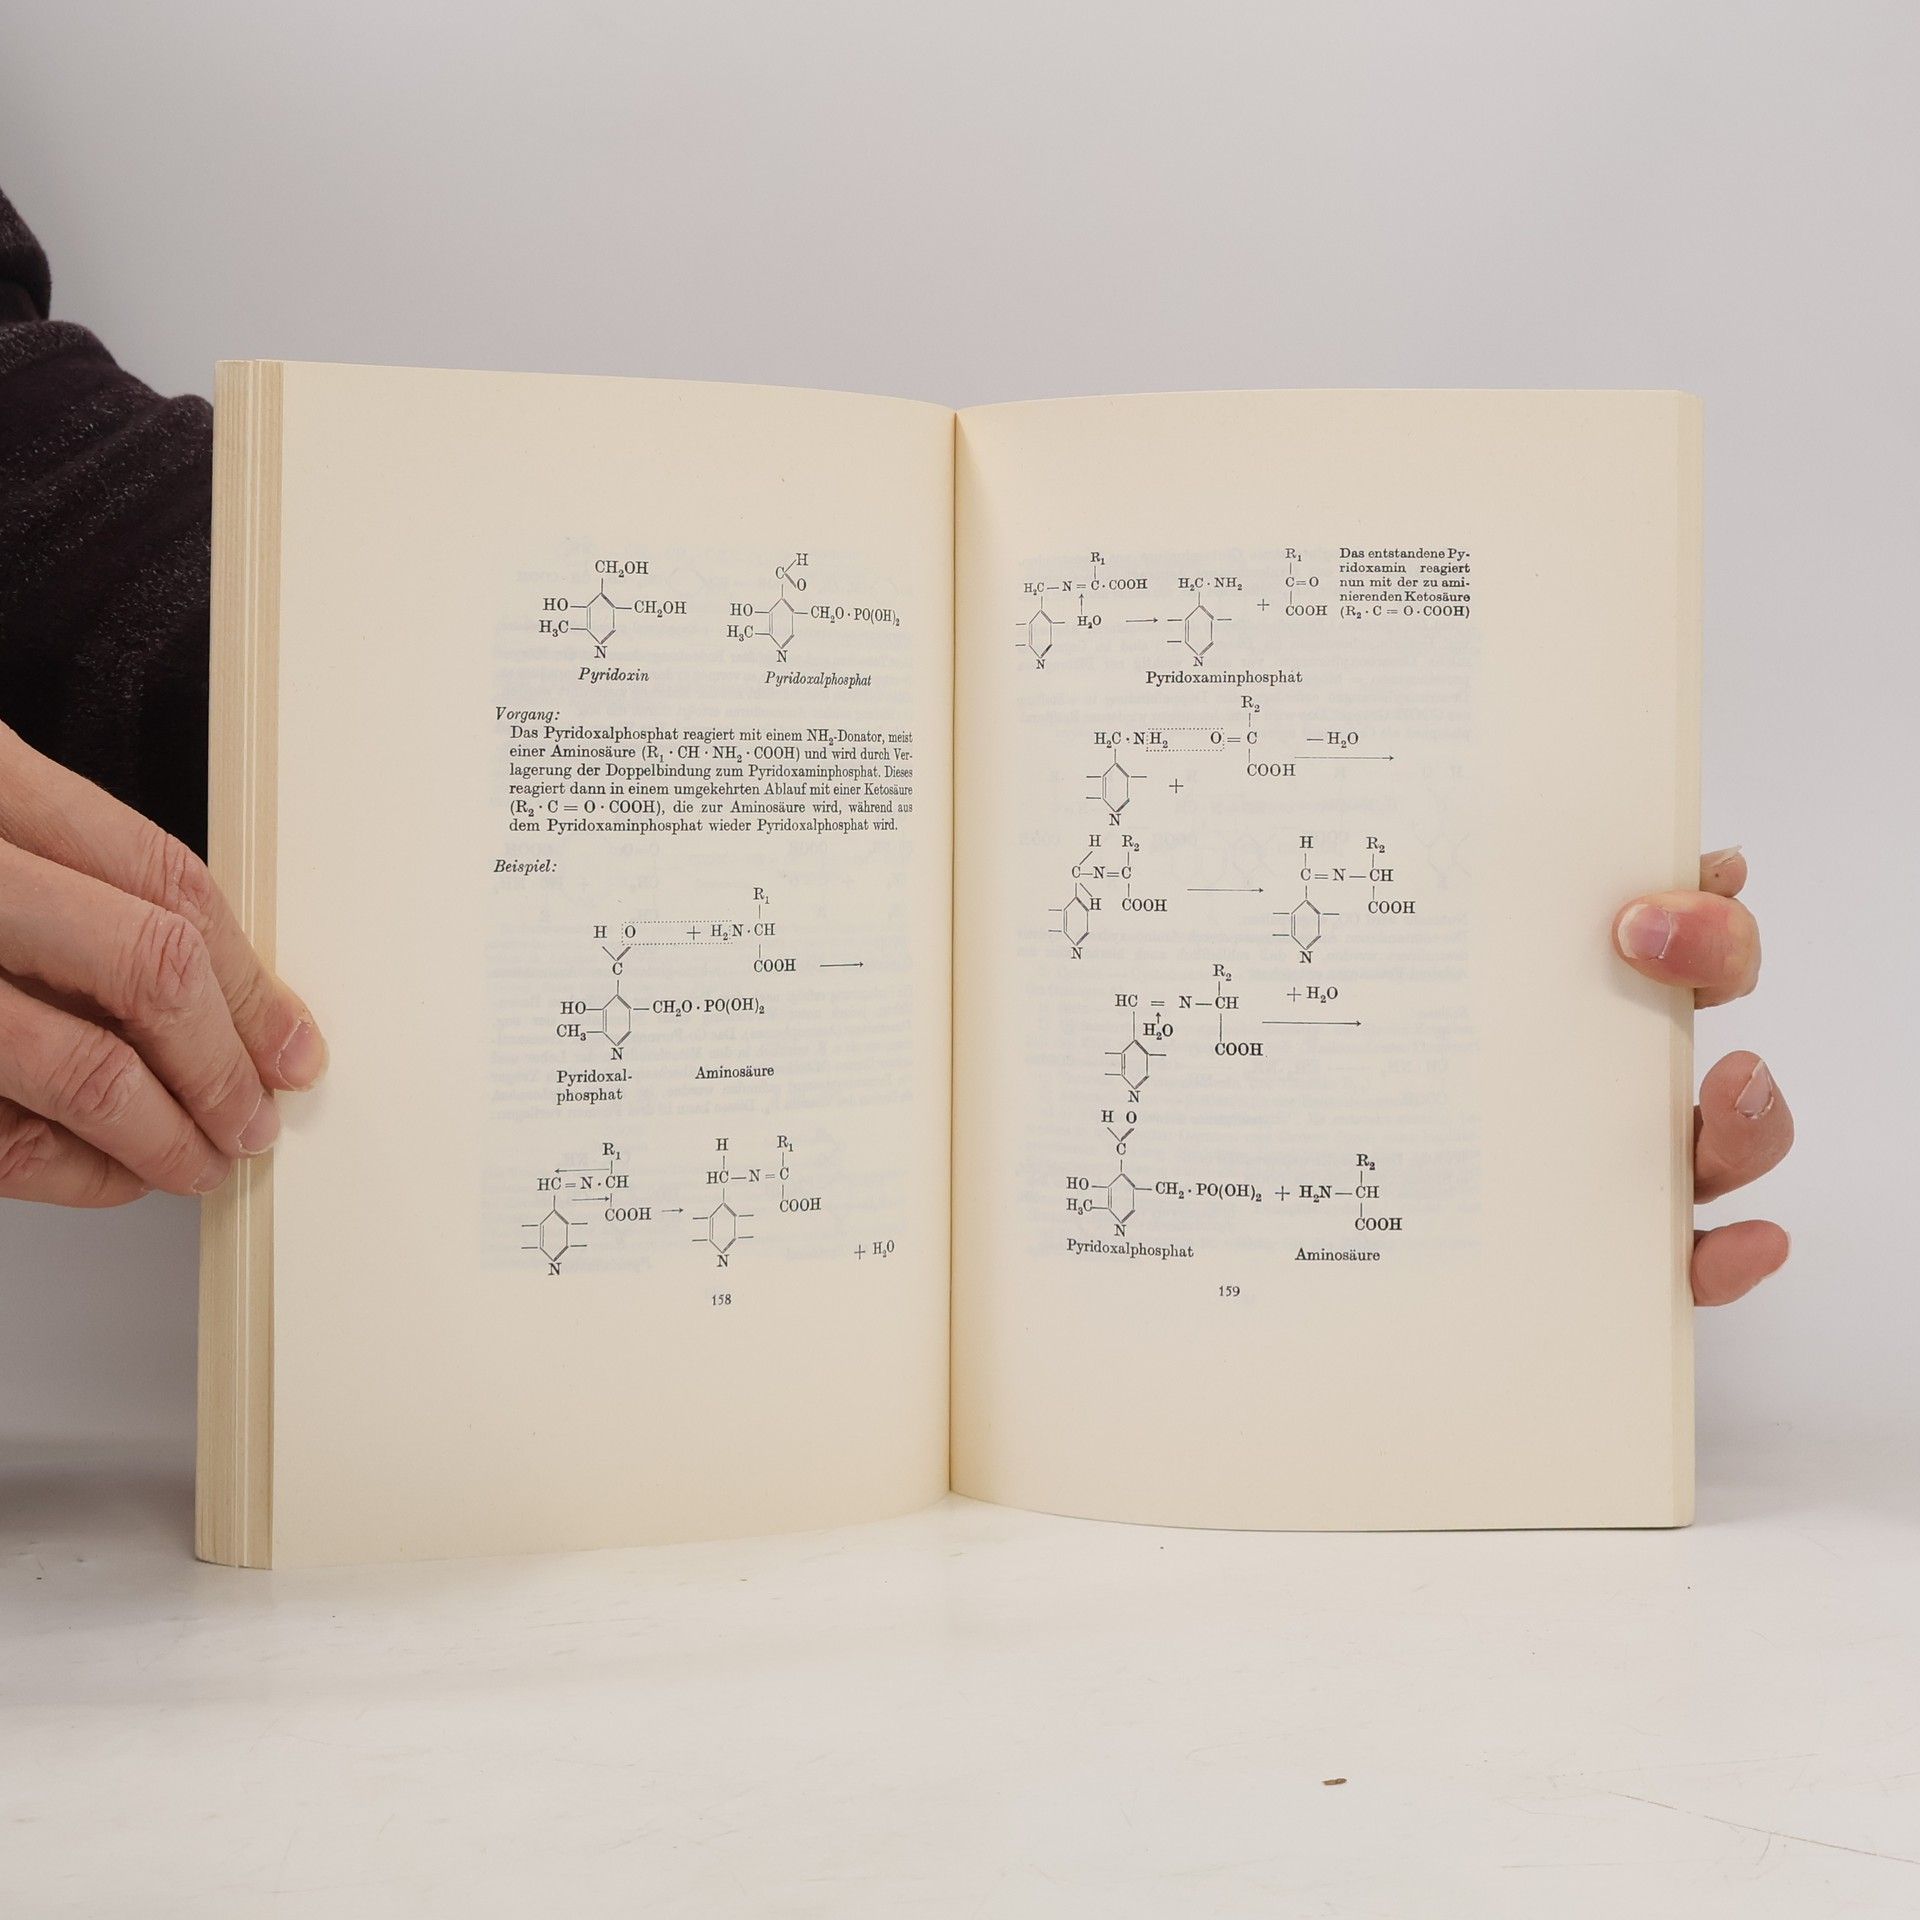 CH₂OH
HO CH₂OH
H₃C
N
Pyridoxin
H
C
O
HO CH₂O · PO(OH)₂
H₃C
N
Pyridoxalphosphat
Vorgang:
Das Pyridoxalphosphat reagiert mit einem NH₂-Donator, meist
einer Aminosäure (R₁ · CH · NH₂ · COOH) und wird durch Ver-
lagerung der Doppelbindung zum Pyridoxaminphosphat. Dieses
reagiert dann in einem umgekehrten Ablauf mit einer Ketosäure
(R₂ · C = O · COOH), die zur Aminosäure wird, während aus
dem Pyridoxaminphosphat wieder Pyridoxalphosphat wird.
Beispiel:
R₁
H O + H₂N · CH
C COOH →
HO CH₂O · PO(OH)₂
CH₃
N
Pyridoxal-
phosphat
Aminosäure
R₁
HC = N · CH
COOH →
N
H R₁
HC — N = C
COOH
N
+ H₂O
158
R₁
H₂C — N = C · COOH
H₂O →
N
H₂C · NH₂
N
+
R₁
C = O
COOH
Das entstandene Py-
ridoxamin reagiert
nun mit der zu ami-
nierenden Ketosäure
(R₂ · C = O · COOH)
Pyridoxaminphosphat
R₂
H₂C · NH₂ O = C — H₂O
COOH →
+
N
H R₂
C — N = C →
H COOH
N
H R₂
C = N — CH
COOH
N
R₂
HC = N — CH + H₂O
H₂O →
COOH
N
H O
C
HO CH₂ · PO(OH)₂ + H₂N — CH
R₂
H₃C
COOH
N
Pyridoxalphosphat Aminosäure
159